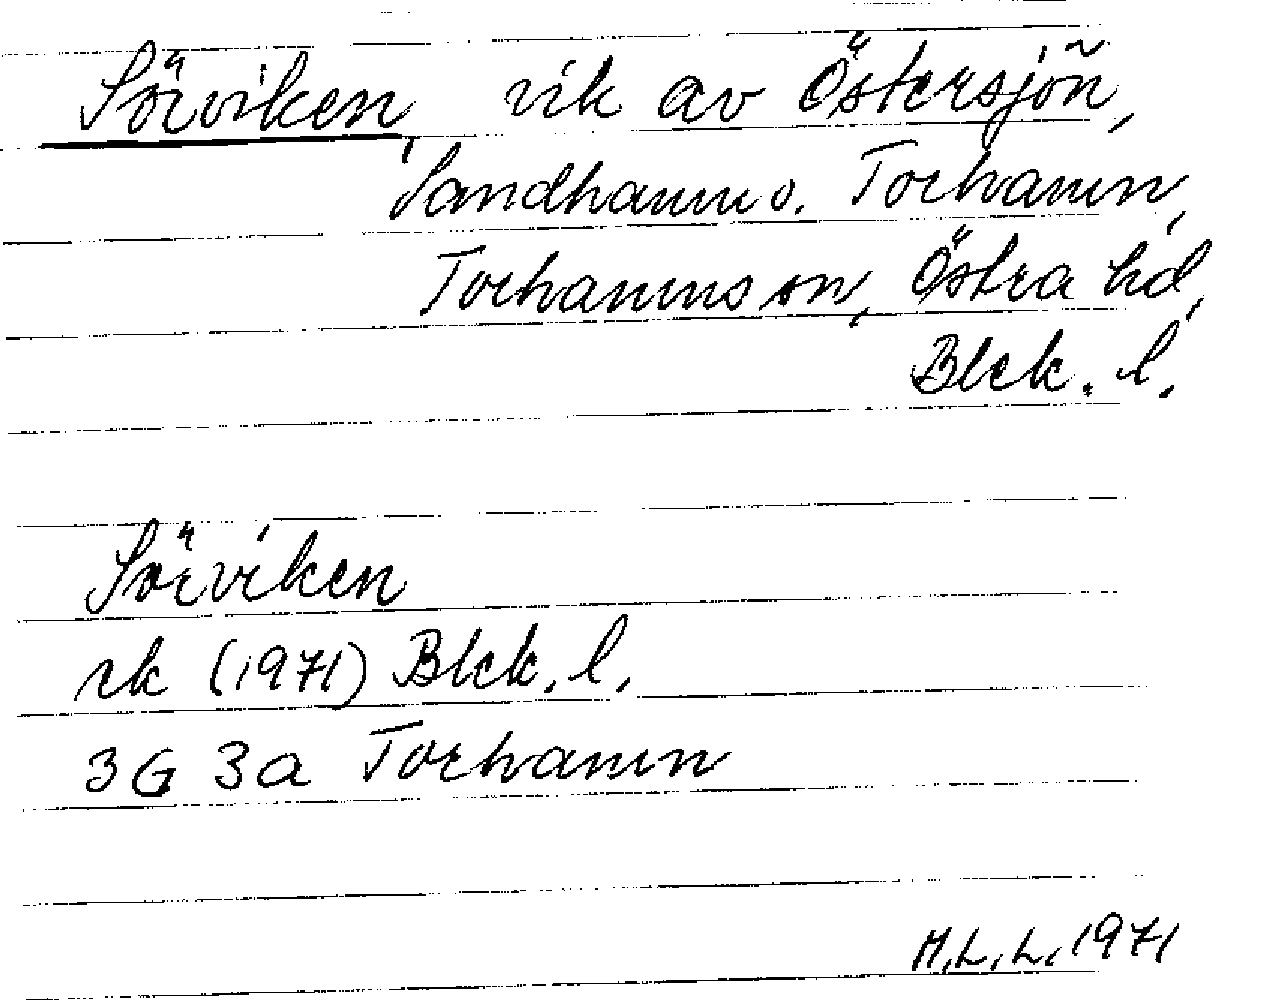 Sörviken vik av Östersjön,
Sandhamn o. Torhamn,
Torhamns sn, Östra hd,
Blek. l.
Sörviken
rk (1971) Blek. l.
3G 3a Torhamn
M.L.L. 1971